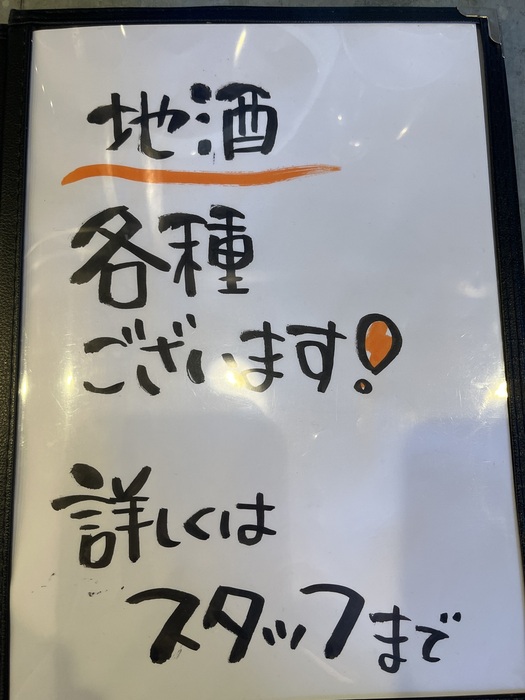 地酒
各種
ございます!
詳しくは
スタッフまで